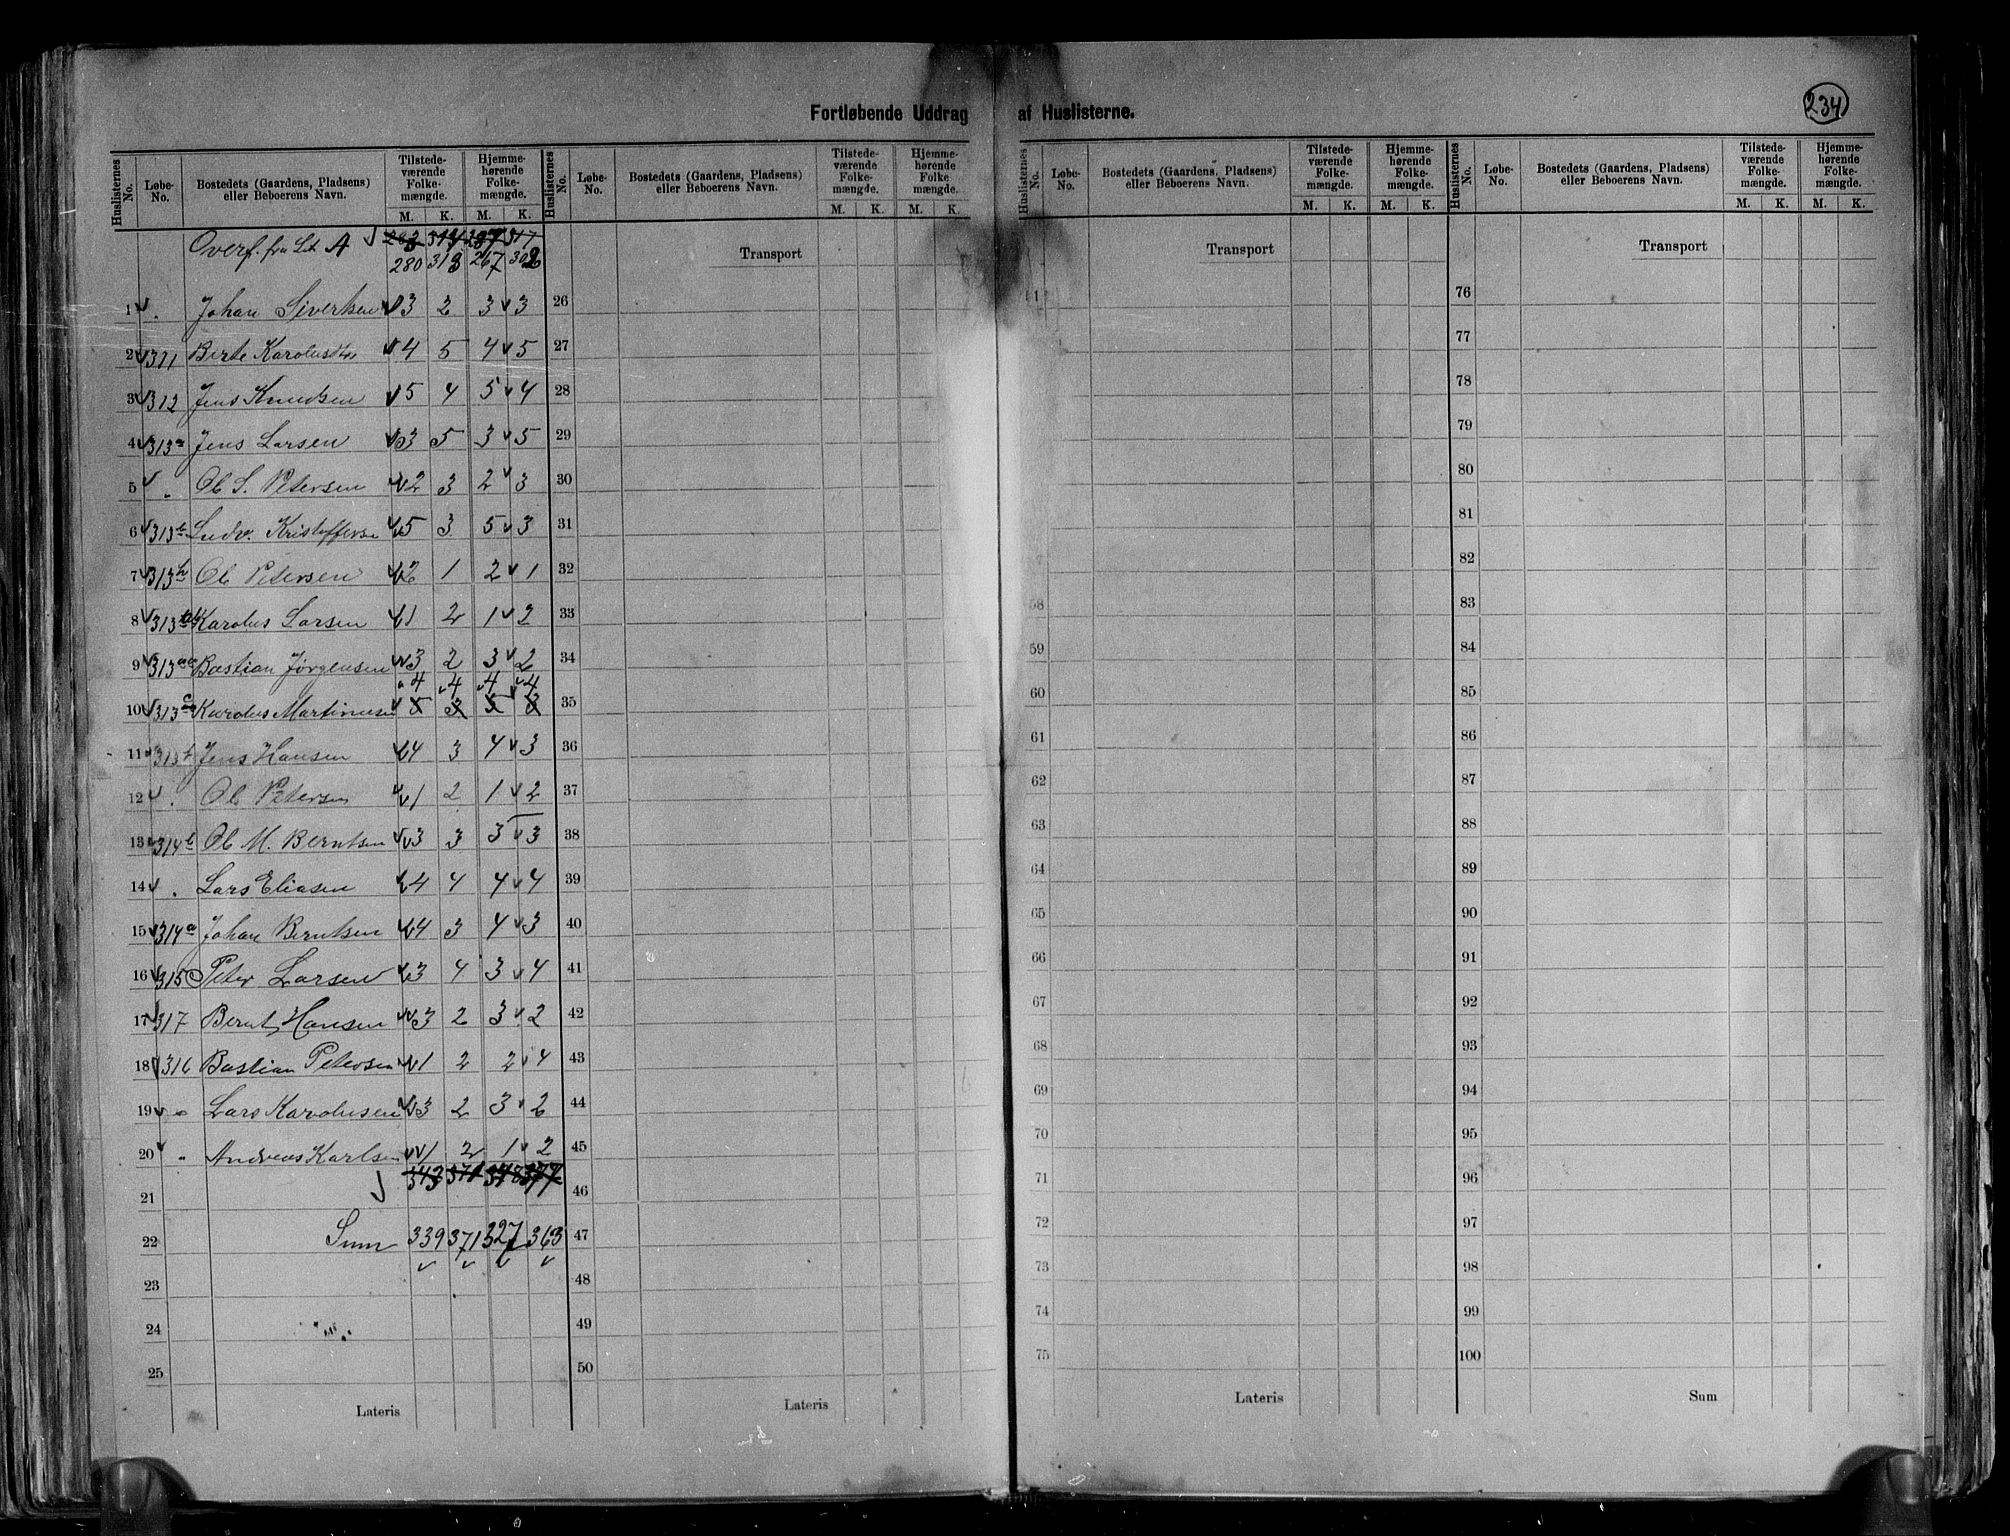 234
Fortløbende Uddrag af Huslisterne.
Huslisternes No. Løbe-No. Bostedets (Gaardens, Pladsens) eller Beboerens Navn. Tilstede-værende Folke-mængde. M. K. Hjemme-hørende Folke-mængde. M. K.
Huslisternes No. Løbe-No. Bostedets (Gaardens, Pladsens) eller Beboerens Navn. Tilstede-værende Folke-mængde. M. K. Hjemme-hørende Folke-mængde. M. K.
Huslisternes No. Løbe-No. Bostedets (Gaardens, Pladsens) eller Beboerens Navn. Tilstede-værende Folke-mængde. M. K. Hjemme-hørende Folke-mængde. M. K.
Huslisternes No. Løbe-No. Bostedets (Gaardens, Pladsens) eller Beboerens Navn. Tilstede-værende Folke-mængde. M. K. Hjemme-hørende Folke-mængde. M. K.
Overf. fra Lit A
280 313 267 302
1 Johan Sivertsen 3 2 3 3
2 311 Berte Karolus 4 5 4 5
3 312 Jens Knudsen 5 4 5 4
4 313a Jens Larsen 3 5 3 5
5 " Ol S. Petersen 2 3 2 3
6 313 Ludv. Kristoffersen 5 3 5 3
7 313h Ol Petersen 2 1 2 1
8 313 Karolus Larsen 1 2 1 2
9 313 Bastian Jørgensen 3 2 3 2
4 4 4 4
10 313 Karolus Martinusen 5 3 5 3
11 313 Jens Hansen 4 3 4 3
12 " Ol Petersen 1 2 1 2
13 314b Ol M. Berntsen 3 3 3 3
14 " Lars Eliasen 4 4 4 4
15 314a Johan Berntsen 4 3 4 3
16 315 Peter Larsen 3 4 3 4
17 317 Bernt Hansen 3 2 3 2
18 316 Bastian Petersen 1 2 2 4
19 " Lars Karolusen 3 2 3 2
20 " Andreas Karlsen 1 2 1 2
21
22 Sum 339 371 327 363
23
24
25
Lateris
Transport
26
27
28
29
30
31
32
33
34
35
36
37
38
39
40
41
42
43
44
45
46
47
48
49
50
Lateris
Transport
58
59
60
61
62
63
64
65
66
67
68
69
70
71
72
73
74
75
Lateris
Transport
76
77
78
79
80
81
82
83
84
85
86
87
88
89
90
91
92
93
94
95
96
97
98
99
100
Sum